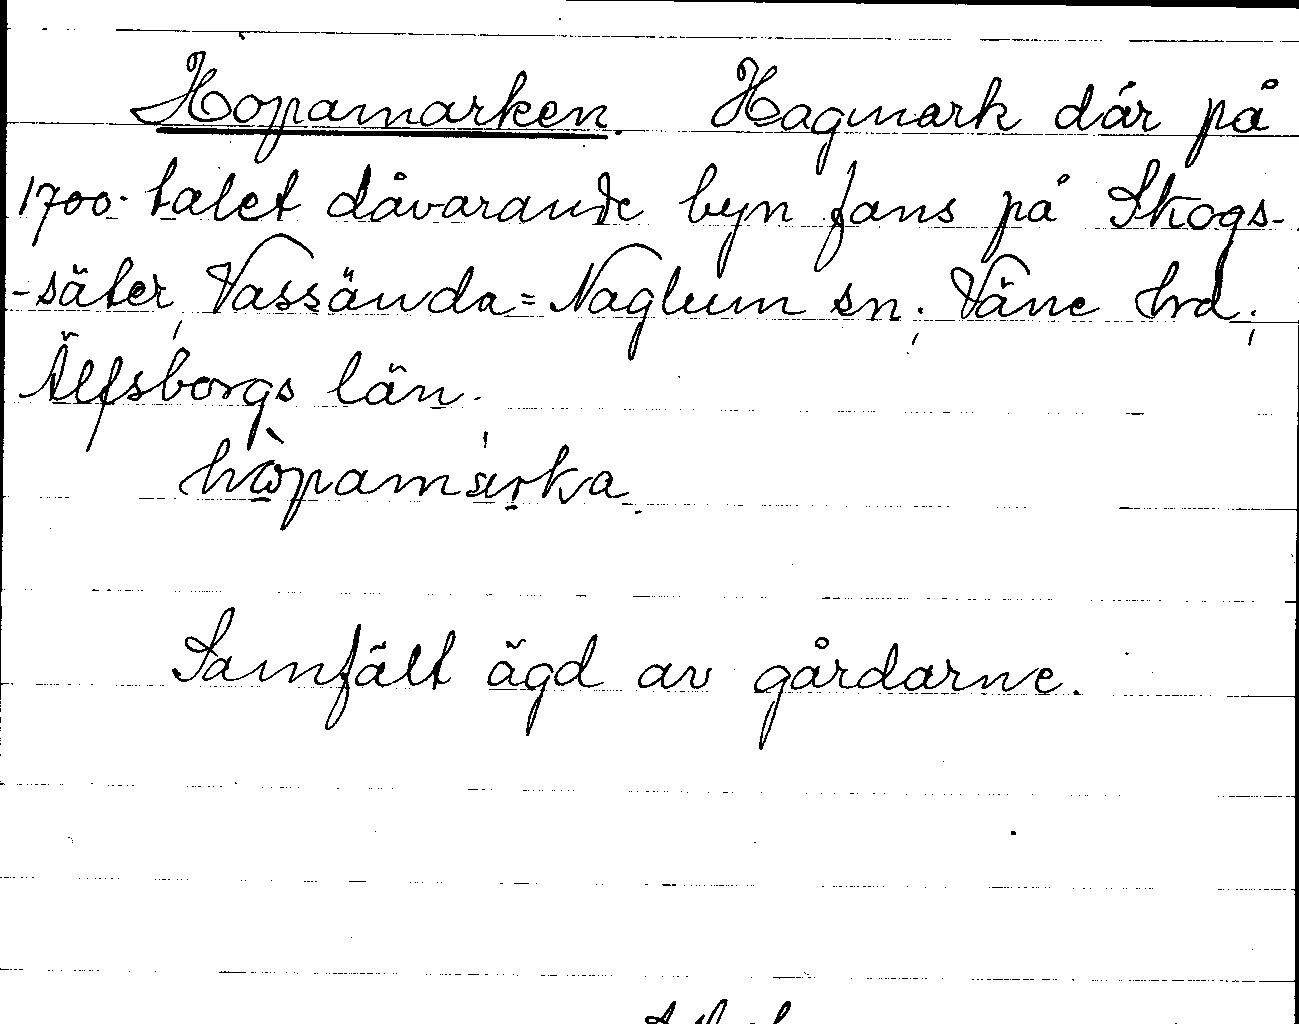 Hopamarken. Hagmark där på
1700-talet dåvarande byn fans på Skogs-
-säter, Vassända=Naglum sn; Väne hrd;
Älfsborgs län.
hòpamárka.
Samfält ägd av gårdarne.